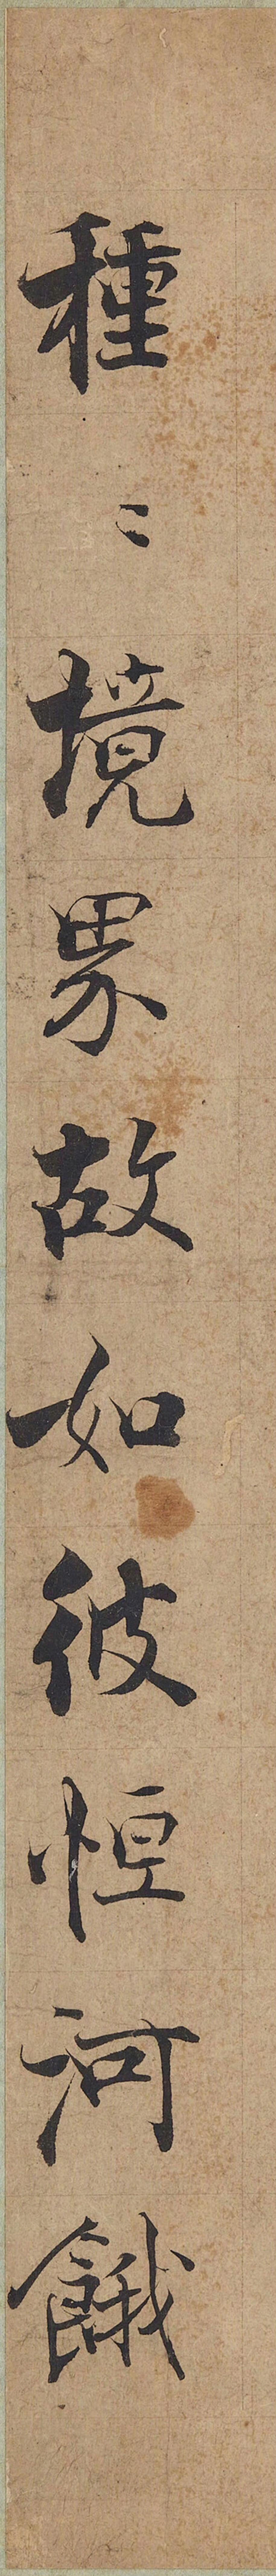 種〻境界故如彼恒河餓